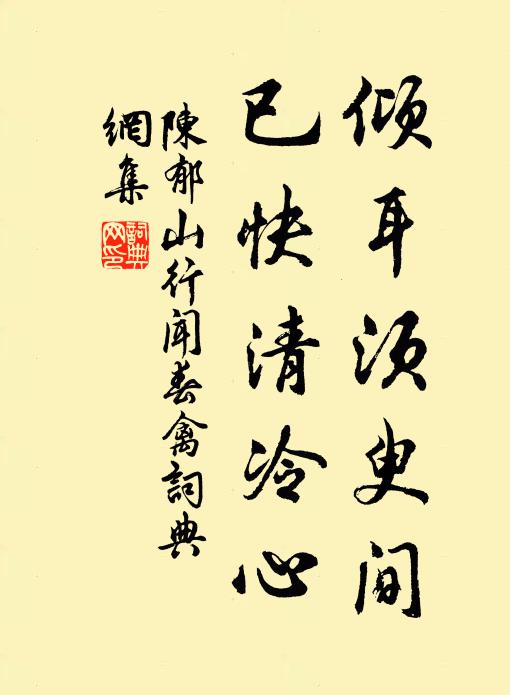 倾耳须臾间
已快清冷心
陳郁山行闻春禽詞典
網集
詞典網印